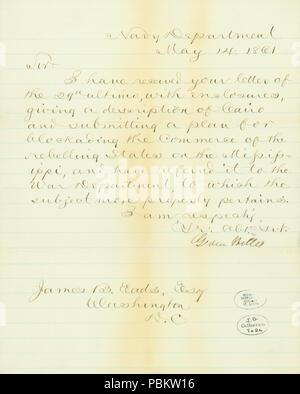 Navy Department
May 14. 1861
Sir:
I have received your letter of
the 29th ultimo, with enclosures,
giving a description of Cairo
and submitting a plan for
blockading the Commerce of the
rebelling States on the Missis-
ippi, and have referred it to the
War Department to which the
subject more properly pertains.
I am, respecfy,
Yr. Obt. Svt.
Gideon Welles
James B. Eads, Esq
Washington
D.C.
J.B.
Collection
alamy
PBKW16